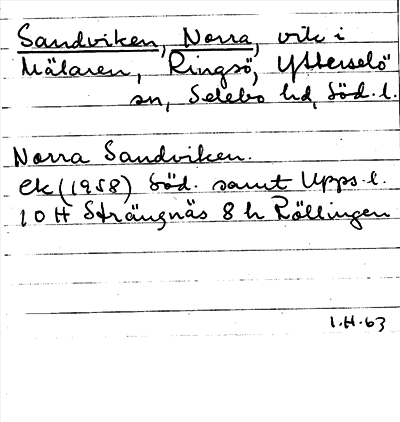 Sandviken, Norra, vik i
Mälaren, Ringsö, Ytterselö
sn, Selebo hd, Söd. l.
Norra Sandviken.
Ek (1958) Söd. samt Upps. l.
10 H Strängnäs 8 h Röllingen
1.H.63